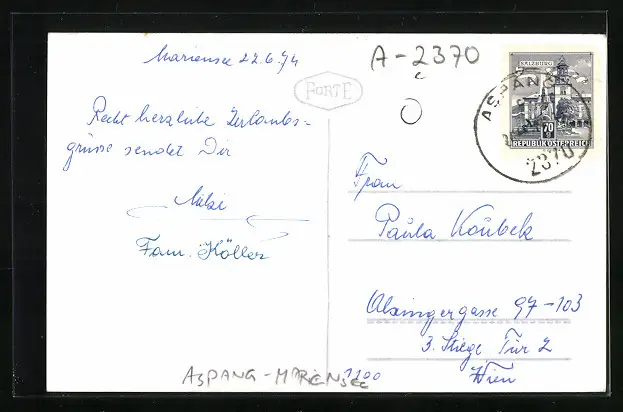 Mariensee 22.6.74
A-2370
PORTE
SALZBURG
ASPANG
70
REPUBLIK ÖSTERREICH
2870
Recht herzliche Urlaubs-
grüsse sendet Dir
Fam. Köller
Frau
Paula Koubek
Alxingergasse 97-103
3. Stiege Tür 2
1100 Wien
ASPANG-MARIENSEE